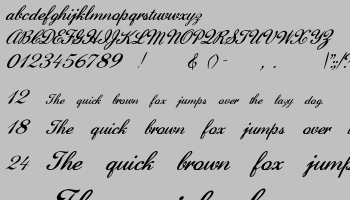 abcdefghijklmnopqrstuvwxyz
ABCDEFGHIJKLMNOPQRSTUVWXYZ
0123456789 ! & () - , . | " ; : / ?
12 The quick brown fox jumps over the lazy dog.
18 The quick brown fox jumps over
24 The quick brown fox jump
The quick brown